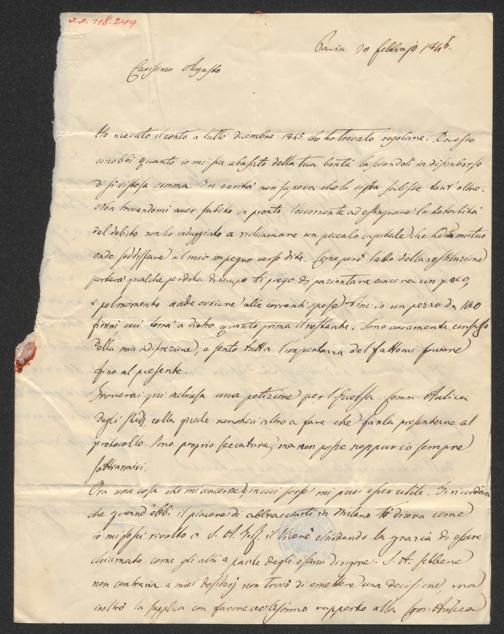 J.A. 118.249
Pavia 20 febbrajo 1846.
Carissimo Augusto
Ho ricevuto il conto a tutto dicembre 1845 che ho trovato regolare. Da esso
conobbi quanto io mi sia abusato della tua bontà lasciandoti in disimborso
di sì vistosa somma. In verità non sapeva che la cifra salisse tant' oltre.
Non trovandomi aver subito in pronto l'occorrente ad estinguere la
del debito non ho indugiato a richiamare un piccolo capitale che ho a mutuo
onde soddisfare al mio impegno verso di te. Legne però l'atto della restituzione
porterà qualche perdita di tempo ti prego di pazientare ancora un poco,
e pel momento onde ovviare alle correnti spese un pezzo da 100
fiorini cui terrà dietro quanto prima il restante. Sono veramente confuso
della mia indiscrezione, e sento tutta l'importanza del fattomi favore
fino al presente.
Troverai qui inclusa una petizione per l'Eccelsa Comm. Aulica
degli Studj colla quale non avrai altro a fare che farla presentare al
protocollo. Sono proprio seccature, ma non posso neppur io sempre
sottrarmivi.
Ora una cosa che mi interessa in cui forse mi puoi esser utile. Ti ricorderai
che quand'ebbi il piacere di abbracciarti in Milano ti diceva come
io mi fossi rivolto a S. A. I. il Vicerè chiedendo la grazia di essere
chiamato come gli altri a parte degli esami di rigore. S. A. sebbene
non contraria a miei desiderj non trovò di emettere una decisione ma
inoltrò la supplica con favorevolissimo rapporto alla Comm. Aulica